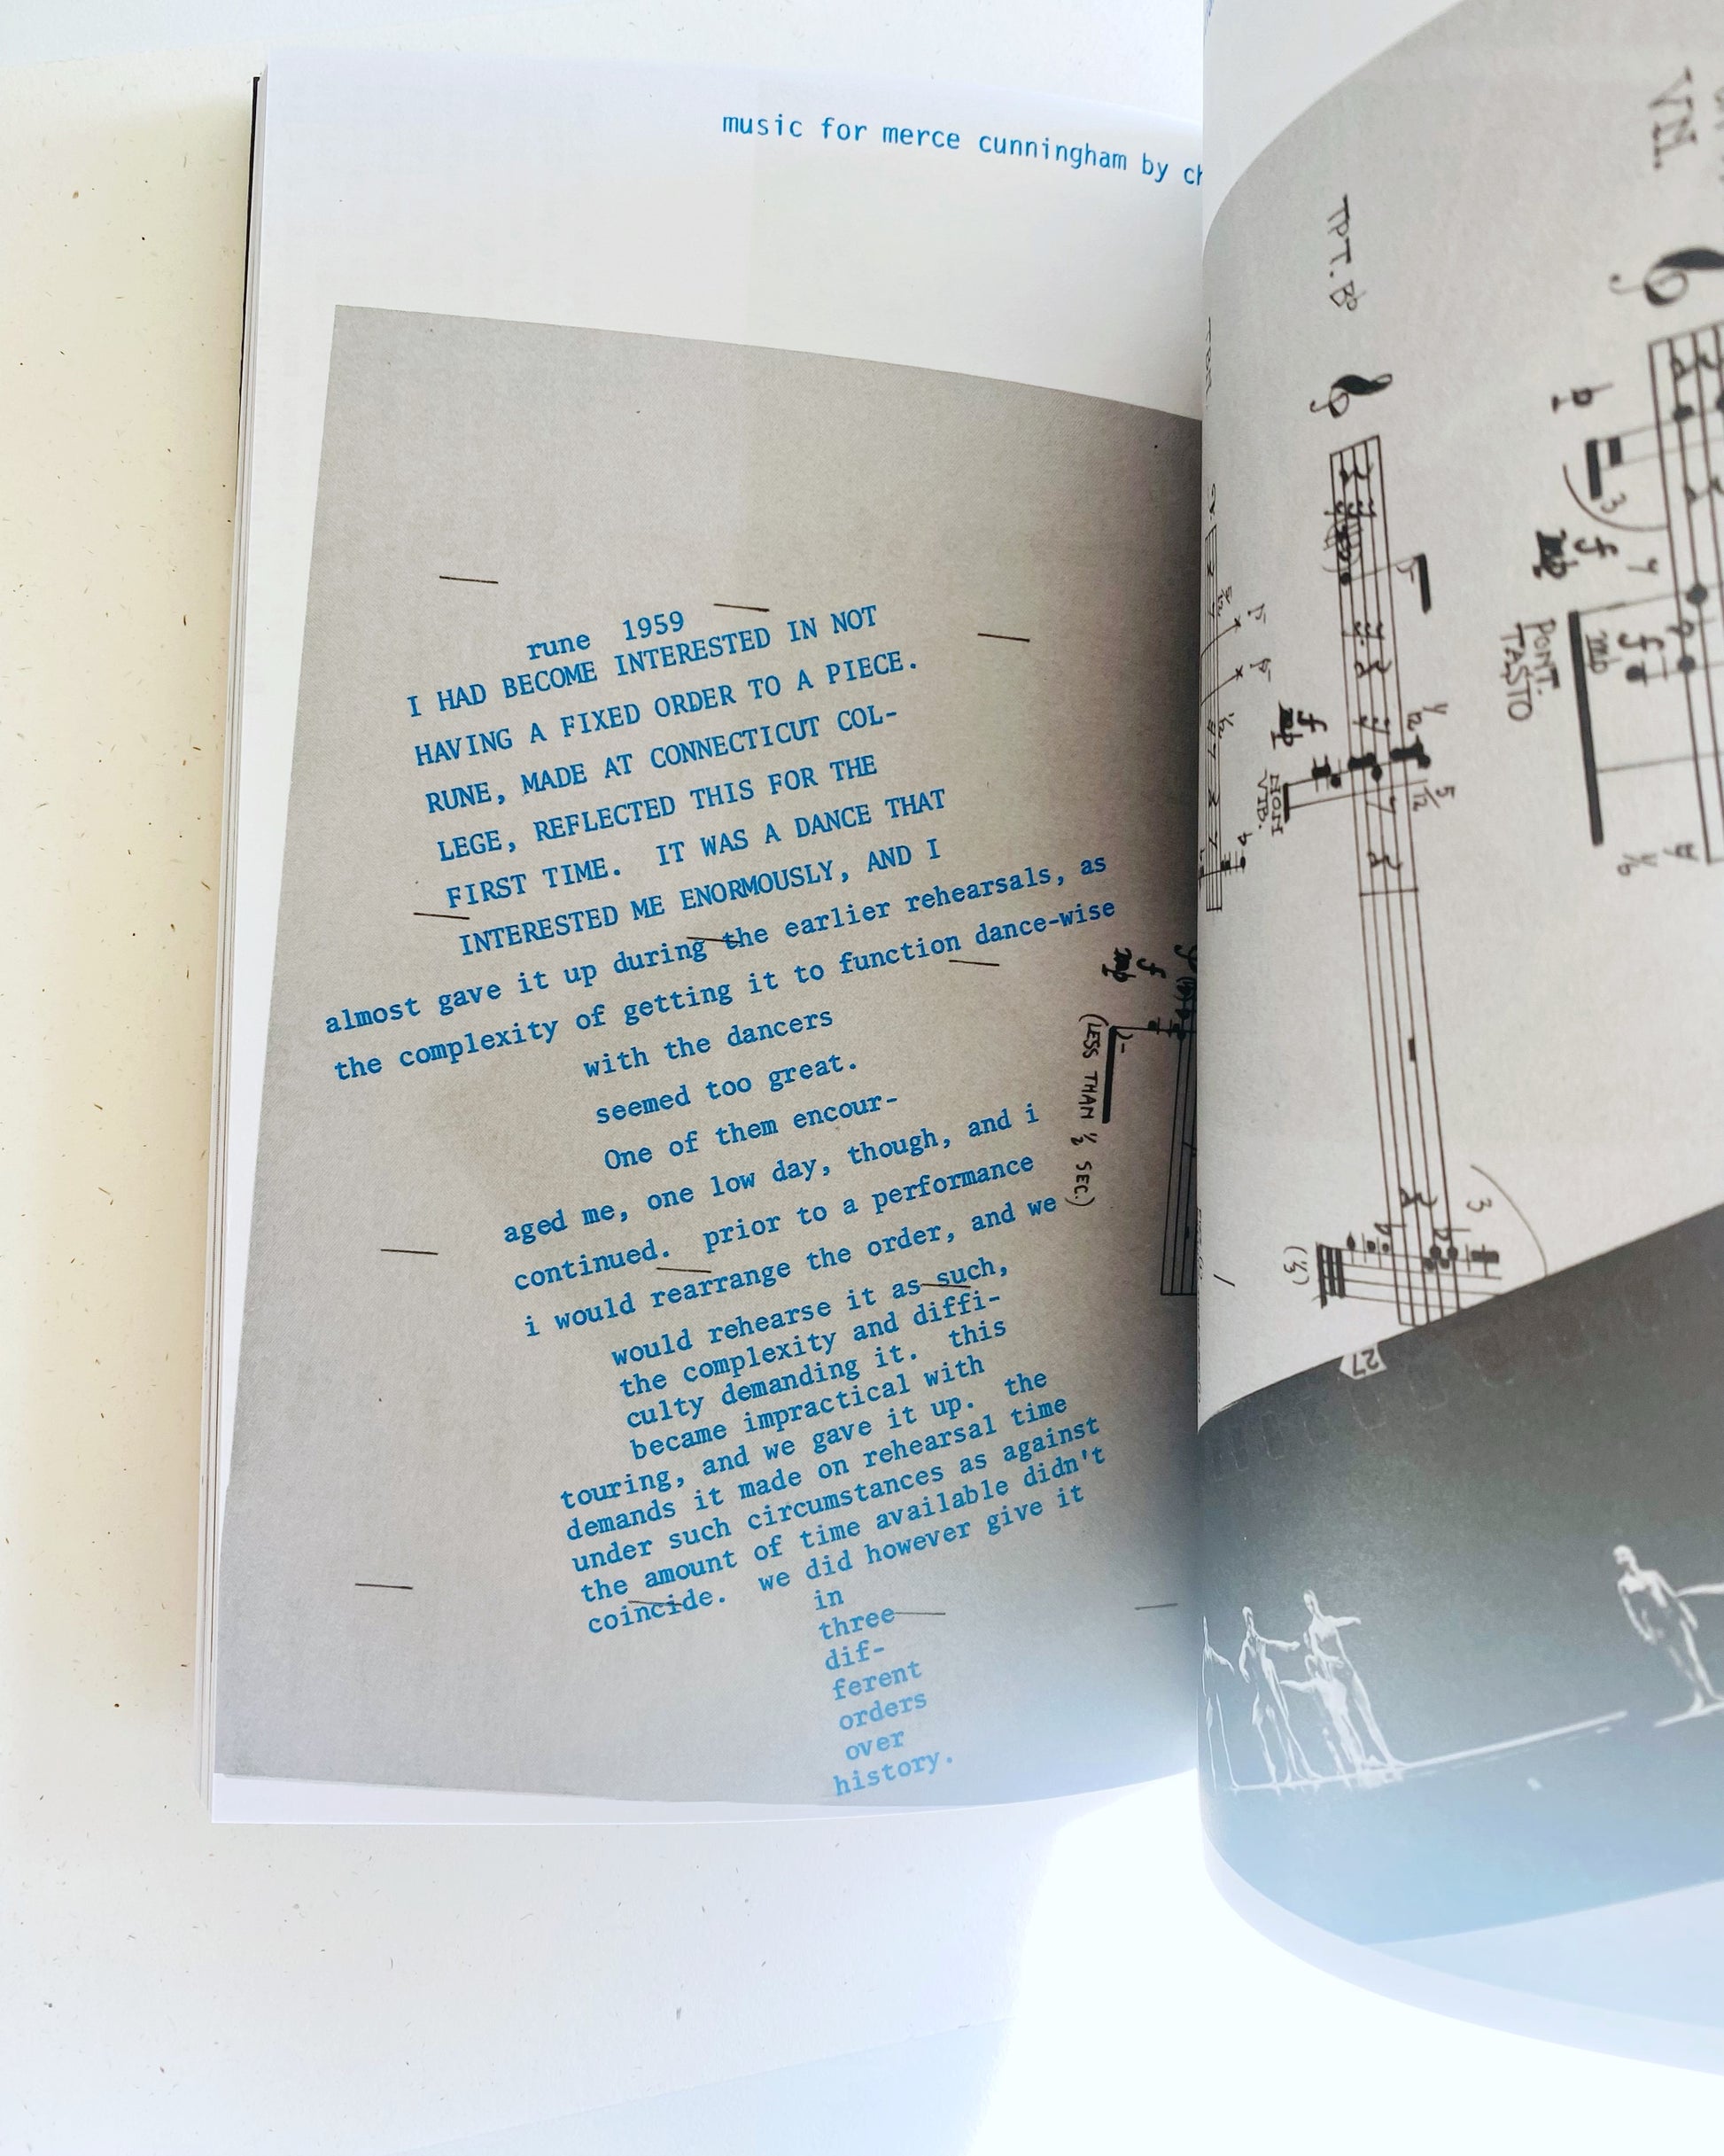 music for merce cunningham by
rune 1959
I HAD BECOME INTERESTED IN NOT
HAVING A FIXED ORDER TO A PIECE.
RUNE, MADE AT CONNECTICUT COL-
LEGE, REFLECTED THIS FOR THE
FIRST TIME. IT WAS A DANCE THAT
INTERESTED ME ENORMOUSLY, AND I
almost gave it up during the earlier rehearsals, as
the complexity of getting it to function dance-wise
with the dancers
seemed too great.
One of them encour-
aged me, one low day, though, and i
continued. prior to a performance
i would rearrange the order, and we
would rehearse it as such,
the complexity and diffi-
culty demanding it. this
became impractical with
touring, and we gave it up. the
demands it made on rehearsal time
under such circumstances as against
the amount of time available didn't
coincide. we did however give it
in
three
dif-
ferent
orders
over
history.
f
mp
(LESS THAN ½ SEC.)
VN.
TPT. B♭
3
f
mp
PONT.
TASTO
mp
f
f
mp
NON
VIB.
5/12
3
(⅓)
27